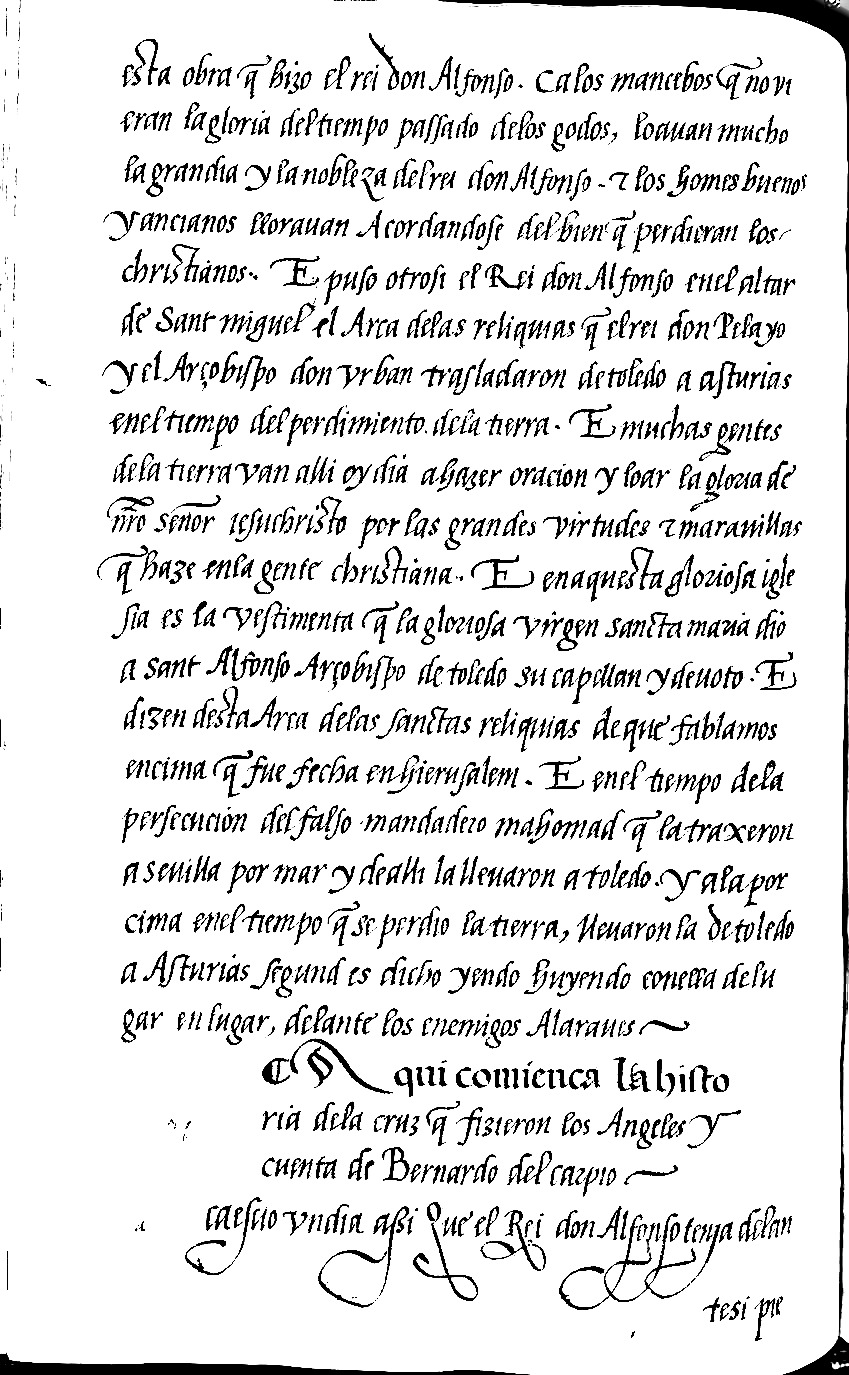 esta obra q̃ hizo el rei don Alfonso. Ca los mancebos q̃ no vi
eran la gloria del tiempo passado de los godos, loauan mucho
la grandia y la nobleza del rei don Alfonso. ⁊ los homes buenos
y ancianos llorauan Acordandose del bien q̃ perdieran los
christianos. E puso otrosi el Rei don Alfonso en el altar
de Sant miguel el Arca de las reliquias q̃ el rei don Pelayo
y el Arçobispo don vrban trasladaron de toledo a asturias
en el tiempo del perdimiento de la tierra. E muchas gentes
de la tierra van alli oy dia a hazer oracion y loar la gloria de
nr̃o señor iesuchristo por las grandes virtudes ⁊ marauillas
q̃ haze en la gente christiana. E en aquesta gloriosa igle
sia es la vestimenta q̃ la gloriosa virgen sancta maria dio
a sant Alfonso Arçobispo de toledo su capellan y deuoto. E
dizen desta Arca de las sanctas reliquias de que fablamos
encima q̃ fue fecha en hierusalem. E en el tiempo de la
persecucion del falso mandadero mahomad q̃ la traxeron
a seuilla por mar y de alli la lleuaron a toledo. y a la por
cima en el tiempo q̃ se perdio la tierra, lleuaron la de toledo
a Asturias segund es dicho yendo huyendo con ella de lu
gar en lugar, delante los enemigos Alaraues
¶ Aqui comienca la histo
ria de la cruz q̃ fizieron los Angeles y
cuenta de Bernardo del carpio
caescio vn dia assi Que el Rei don Alfonso tenia delan
te si pie